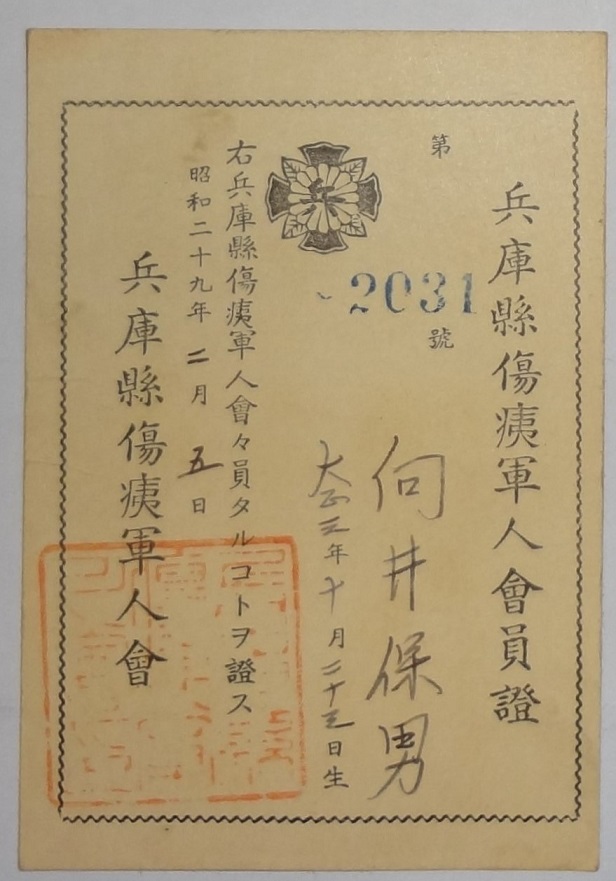 兵庫縣傷痍軍人會員證
第
2031
號
向井保男
大正三年十月二十三日生
兵
右兵庫縣傷痍軍人會々員タルコトヲ證ス
昭和二十九年二月五日
兵庫縣傷痍軍人會